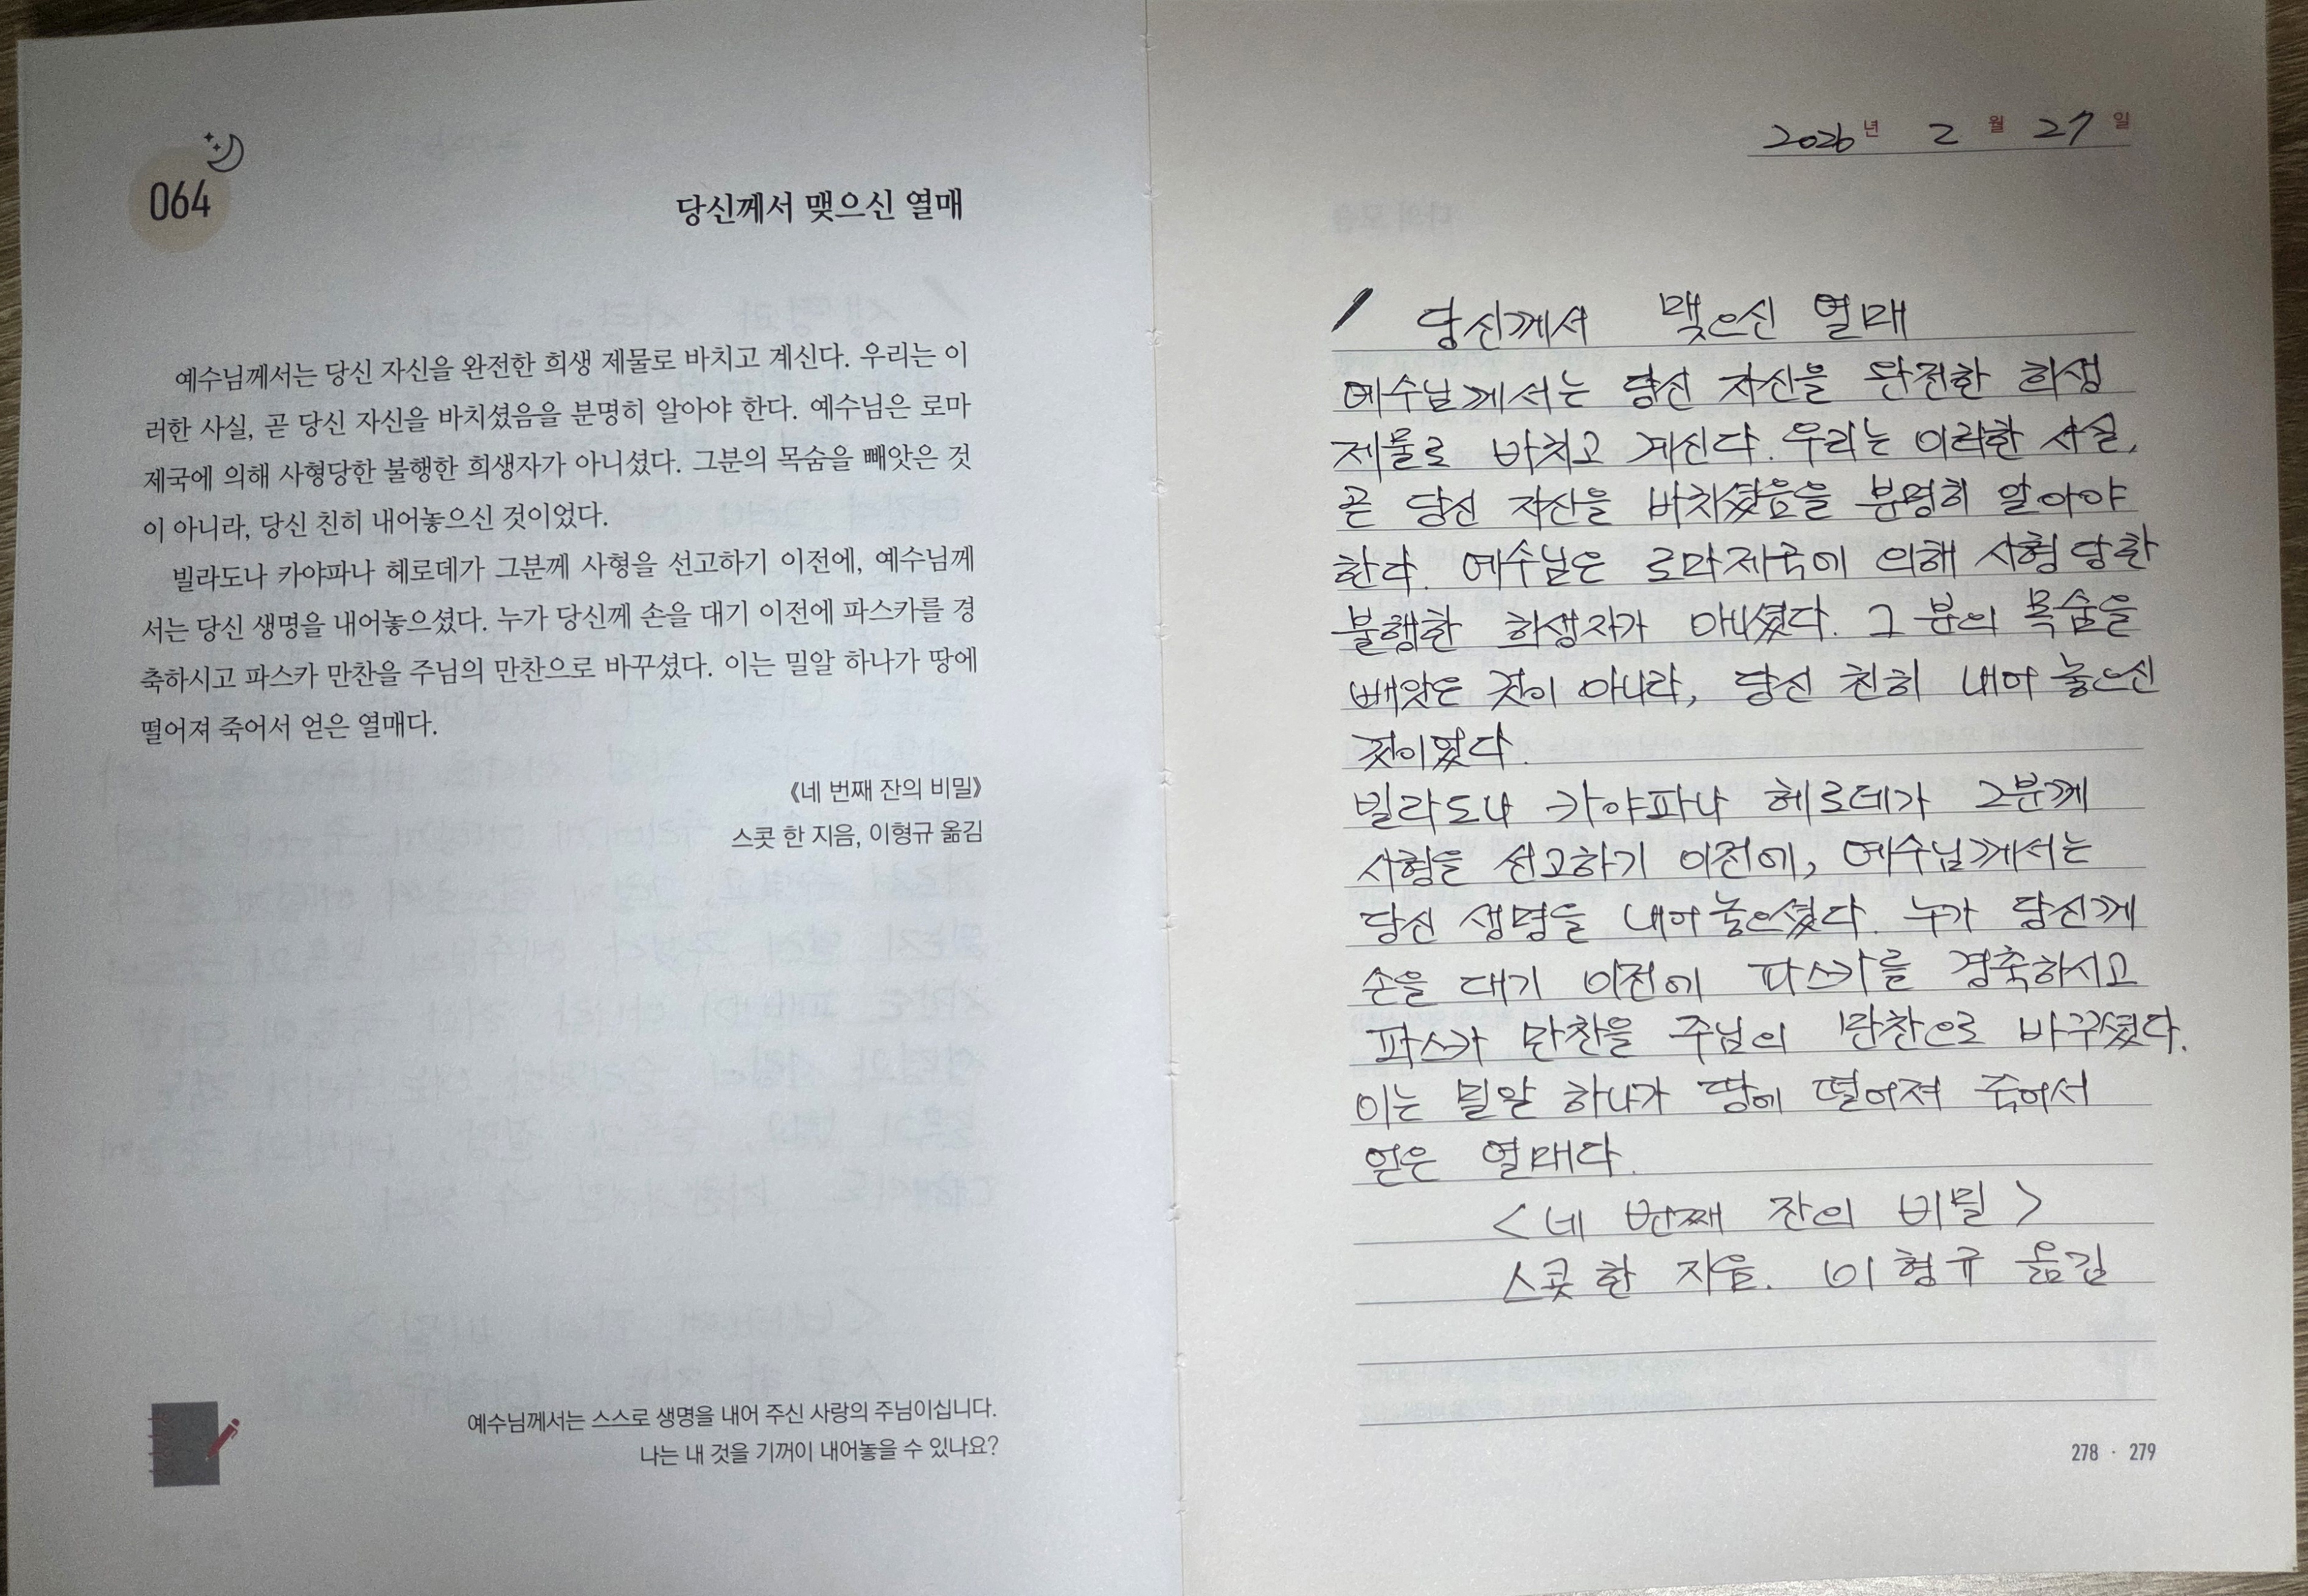 064
당신께서 맺으신 열매
예수님께서는 당신 자신을 완전한 희생 제물로 바치고 계신다. 우리는 이
러한 사실, 곧 당신 자신을 바치셨음을 분명히 알아야 한다. 예수님은 로마
제국에 의해 사형당한 불행한 희생자가 아니셨다. 그분의 목숨을 빼앗은 것
이 아니라, 당신 친히 내어놓으신 것이었다.
빌라도나 카야파나 헤로데가 그분께 사형을 선고하기 이전에, 예수님께
서는 당신 생명을 내어놓으셨다. 누가 당신께 손을 대기 이전에 파스카를 경
축하시고 파스카 만찬을 주님의 만찬으로 바꾸셨다. 이는 밀알 하나가 땅에
떨어져 죽어서 얻은 열매다.
《네 번째 잔의 비밀》
스콧 한 지음, 이형규 옮김
예수님께서는 스스로 생명을 내어 주신 사랑의 주님이십니다.
나는 내 것을 기꺼이 내어놓을 수 있나요?
2026년 2월 27일
당신께서 맺으신 열매
예수님께서는 당신 자신을 완전한 희생
제물로 바치고 계신다. 우리는 이러한 사실,
곧 당신 자신을 바치셨음을 분명히 알아야
한다. 예수님은 로마제국에 의해 사형 당한
불행한 희생자가 아니셨다. 그 분의 목숨을
빼앗은 것이 아니라, 당신 친히 내어 놓으신
것이었다.
빌라도나 카야파나 헤로데가 그분께
사형을 선고하기 이전에, 예수님께서는
당신 생명을 내어 놓으셨다. 누가 당신께
손을 대기 이전에 파스카를 경축하시고
파스카 만찬을 주님의 만찬으로 바꾸셨다.
이는 밀알 하나가 땅에 떨어져 죽어서
얻은 열매다.
<네 번째 잔의 비밀>
스콧 한 지음. 이형규 옮김
278 · 279